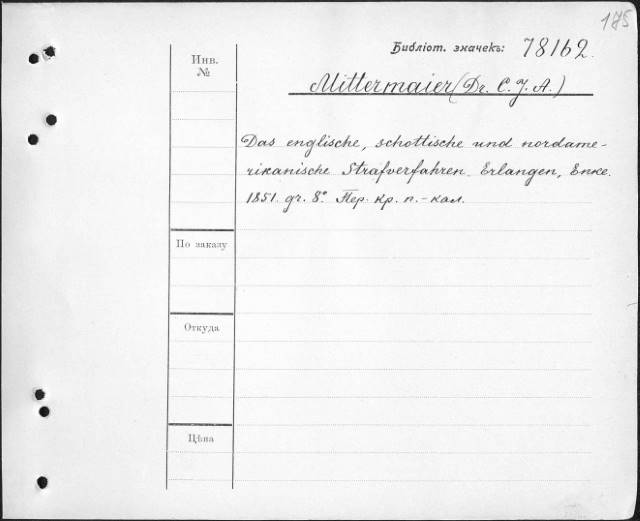 175
Библіот. значекъ: 78162.
Инв.
№
Mittermaier (Dr. C. J. A.)
Das englische, schottische und nordame-
rikanische Strafverfahren. Erlangen, Enke.
1851. gr. 8° Пер. кр. п.-кал.
По заказу
Откуда
Цѣна